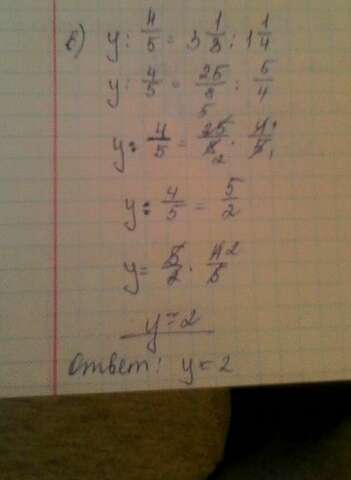 б) y : 4/5 = 3 1/8 : 1 1/4
y : 4/5 = 25/8 : 5/4
y : 4/5 = 25/8 · 4/5 5 2 1 1
y : 4/5 = 5/2
y = 5/2 · 4/5 2
y = 2
Ответ: y = 2